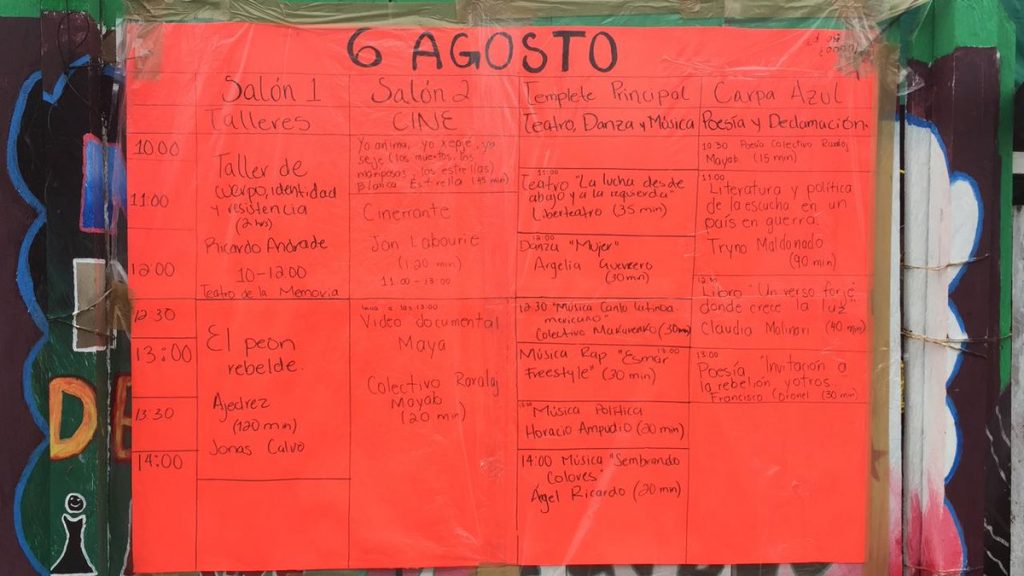 6 AGOSTO
Salón 1
Talleres
Salón 2
CINE
Templete Principal
Teatro, Danza y Música
Carpa Azul
Poesía y Declamación
10:00
11:00
12:00
12:30
13:00
13:30
14:00
Taller de
cuerpo, identidad
y resistencia
(2 hrs)
Ricardo Andrade
10-12:00
Teatro de la Memoria
El peon
rebelde.
Ajedrez
(120 min)
Jonas Calvo
Yo anima, yo xepje, yo
seje (los muertos, las
mariposas, los estrellas)
Blanca Estrella (45 min)
Cinerrante
Jon Labourie
(1:20 min)
11:00 - 13:00
13:00
Video documental
Maya
Colectivo
Mayab
(20 min)
11:00
Teatro "La lucha desde
abajo y a la izquierda"
Liberteatro (35 min)
12:00
Danza "Mujer"
Argelia Guerrero
(30min)
12:30 "Música Canto latino
mexicano"
Colectivo Makarenko (30min)
13:00
Música Rap "Esmar
Freestyle" (20 min)
Música Política
Horacio Ampudio (20 min)
14:00 Música "Sembrando
Colores"
Ágel Ricardo (20 min)
10:30 Poesía Colectivo
Mayab (15 min)
11:00
Literatura y política
de la escucha en un
país en guerra.
Tryno Maldonado
(40 min)
Libro "Un verso forje
donde crece la luz
Claudia Molinari (40 min)
13:00
Poesía "Invitación a
la rebelión y otros
Francisco Coronel (30 min)
DE